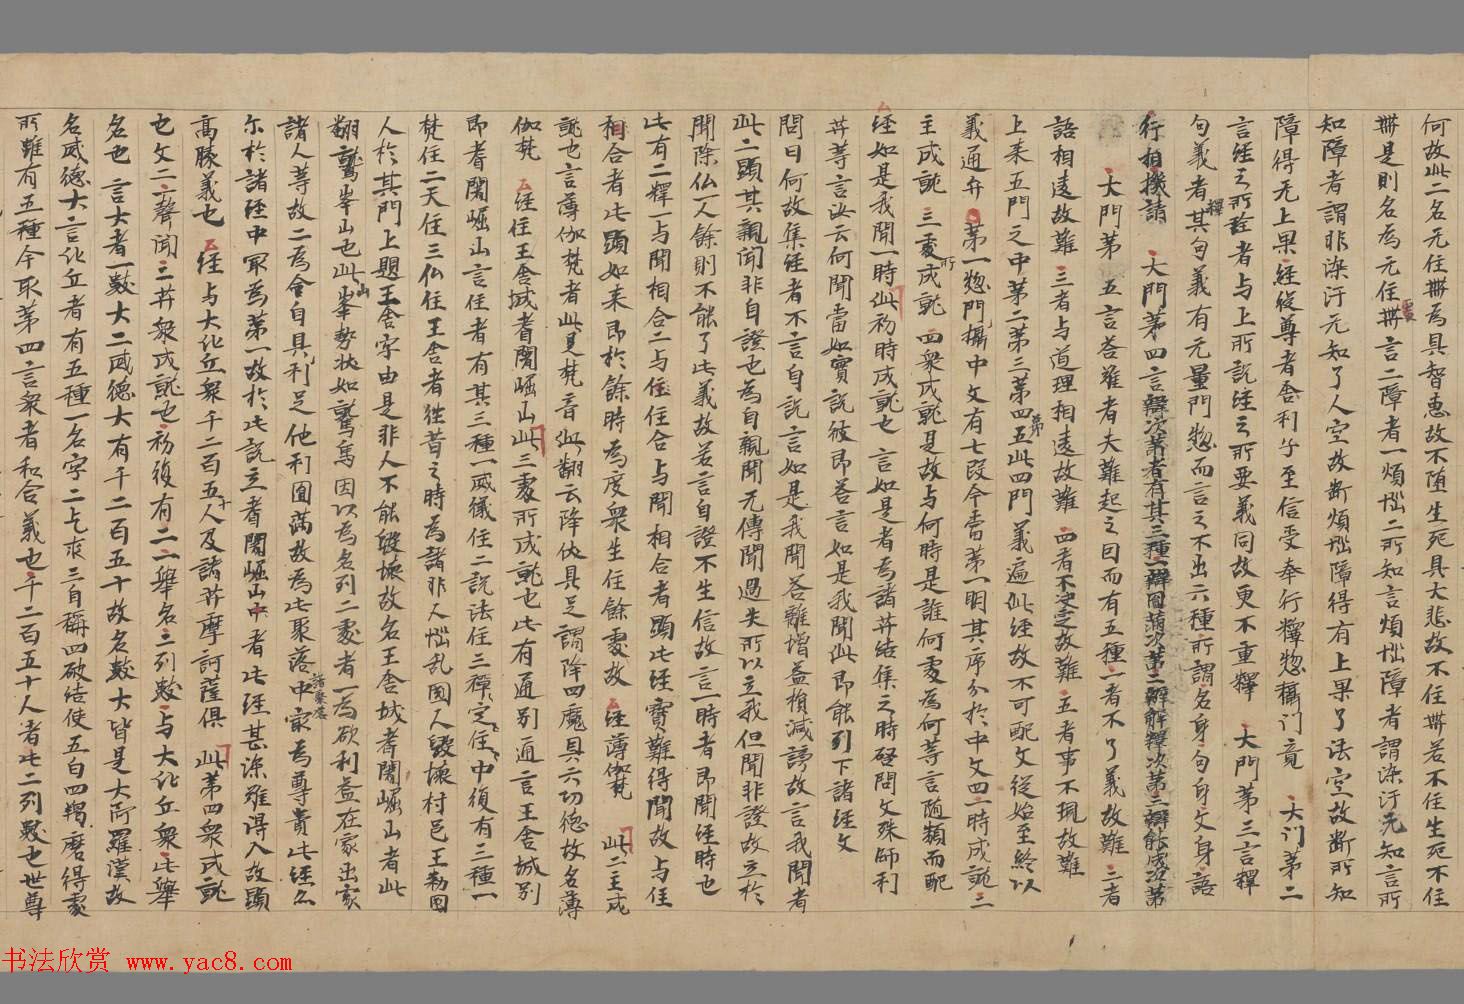 何故此二名无住無為具智惠故不堕生死具大悲故不住無若不住生死不住
無是則名為无住無言二障者一煩惱二所知言煩惱障者謂染汙无知言所
知障者謂非染汙无知了人空故断煩惱障得有上果了法空故断所知
障得无上果経從尊者舍利子至信受奉行釋惣攝门竟 大门第二
言経之所詮者与上所說経之所要義同故更不重釋 大門第三言釋
句義者其句義有无量門惣而言之不出六種所謂名身句身文身語
行相機請 大門第四言釋次第者有其三種一釋因第次第二辯解釋次第三辯能成次第
大門第五言荅難者夫難起之因而有五種一者不了義故難二者
語相違故難 三者与道理相違故難 四者不决定故難 五者事不現故難
上来五門之中第二第三第四第五此四門義遍此経故不可配文從始至終以
義通弁 第一惣門攝中文有七段今當第一明其序分於中文四一時成就二
主成就 三所處成就 四衆成就是故与何時是誰何處為何等言随類而配
経如是我聞一時此初時成就也 言如是者為諸菩結集之時啓問文殊師利
菩等言汝云何聞當如實說彼即荅言如是我聞此即能列下諸経文
問曰何故集経者不言自說言如是我聞荅離增益損減謗故言我聞者
此二顕其親聞非自證也為自親聞无傳聞過失所以立我但聞非證故立於
聞除仏一人餘則不能了此義故若言自證不生信故言一時者即聞経時也
此有二釋一与聞相合二与住住合与聞相合者顕此経寶難得聞故与住
相合者此顕如来即於餘時為度衆生住餘處故 経薄伽梵 此二主成
就也言薄伽梵者此是梵音此翻云降伏具足謂降四魔具六功德故名薄
伽梵 経住王舍城耆闍崛山此三處所成就也此有通別通言王舍城別
即耆闍崛山言住者有其三種一威儀住二說法住三禪定住中復有三種一
梵住二天住三仏住王舍者徃昔之時為諸非人惱乱國人毀壞村邑王勑國
人於其門上題王舍字由是非人不能毀壞故名王舍城耆闍崛山者此
翻鷲峯山也此山峯勢狀如鷲鳥因以為名列二處者一為欲利益在家出家
諸人等故二為令自具利足他利圎滿故為此聚落中諸聚落家為尊貴此経亦
尓於諸経中冣為第一故於此說立耆闍崛山中者此経甚深難得入故顕
高勝義也 経与大比丘衆千二百五十人及諸菩摩訶薩俱 此第四衆成就
也文二一聲聞二菩衆成就也初復有二一舉名二列數与大比丘衆此舉
名也言大者一數大二威德大有千二百五十故名數大皆是大阿羅漢故
名威德大言比丘者有五種一名字二乞求三自稱四破結使五白四羯磨得家
所雖有五種今取第四言衆者和合義也千二百五十人者此二列數也世尊
书法欣赏 www.yac8.com